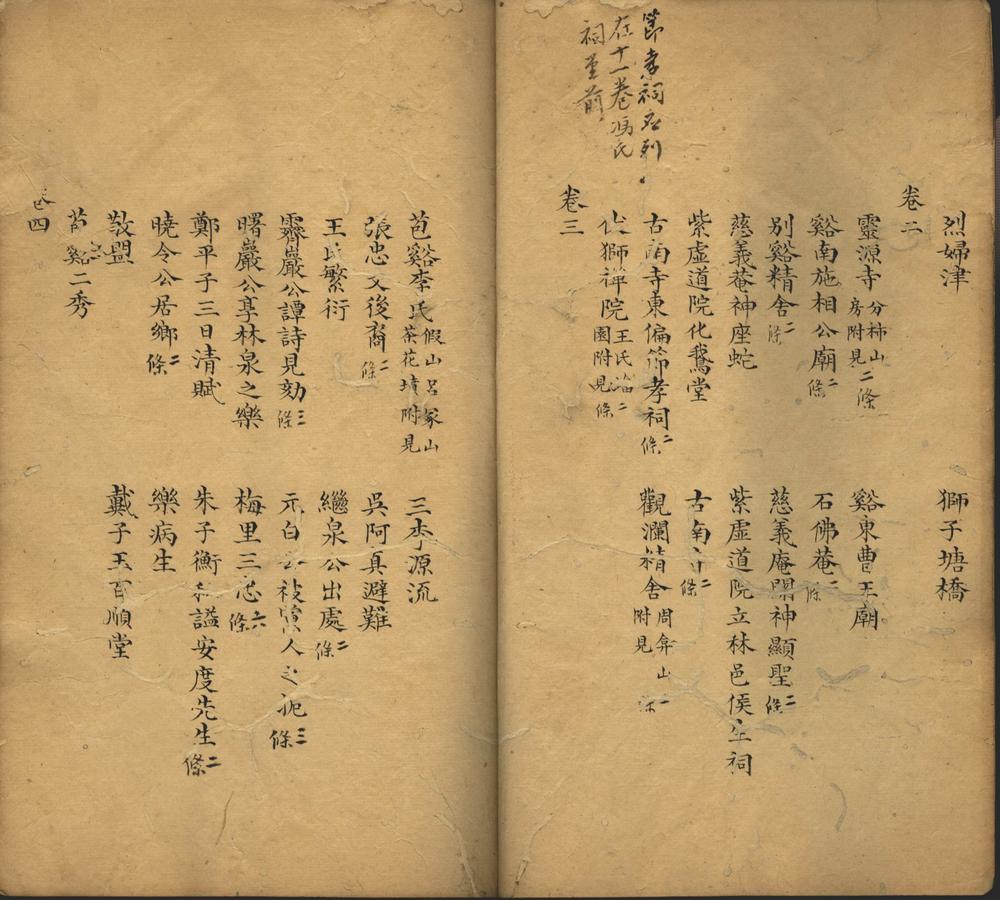 節孝祠應列
在十一卷馮氏
祠堂前
烈婦津　獅子塘橋
卷二
靈源寺 分柿山房附見 二條　谿東曹王廟
谿南施相公廟 二條　石佛菴 二條
別谿精舍 二條　慈義庵關神顯聖 二條
慈義菴神座蛇　紫虛道院立林邑侯生祠
紫虛道院化鵞堂　古南寺 二條
古南寺東偏節孝祠 二條　觀瀾精舍 周弁山附見
獅禪院 王氏園附見 二條
卷三
苞谿李氏 假山呂冢山茶花墳附見　三李源流
張忠文後裔 二條　吳阿真避難
王氏繁衍　繼泉公出處 二條
霽巖公譚詩見劾 三條　元白公被人之扼 三條
曙巖公享林泉之樂　梅里三忠 六條
鄭平子三日清賦　朱子衡私謚安度先生 二條
曉令公居鄉 二條　樂病生
敬盟　戴子玉百順堂
苞谿二秀
卷四